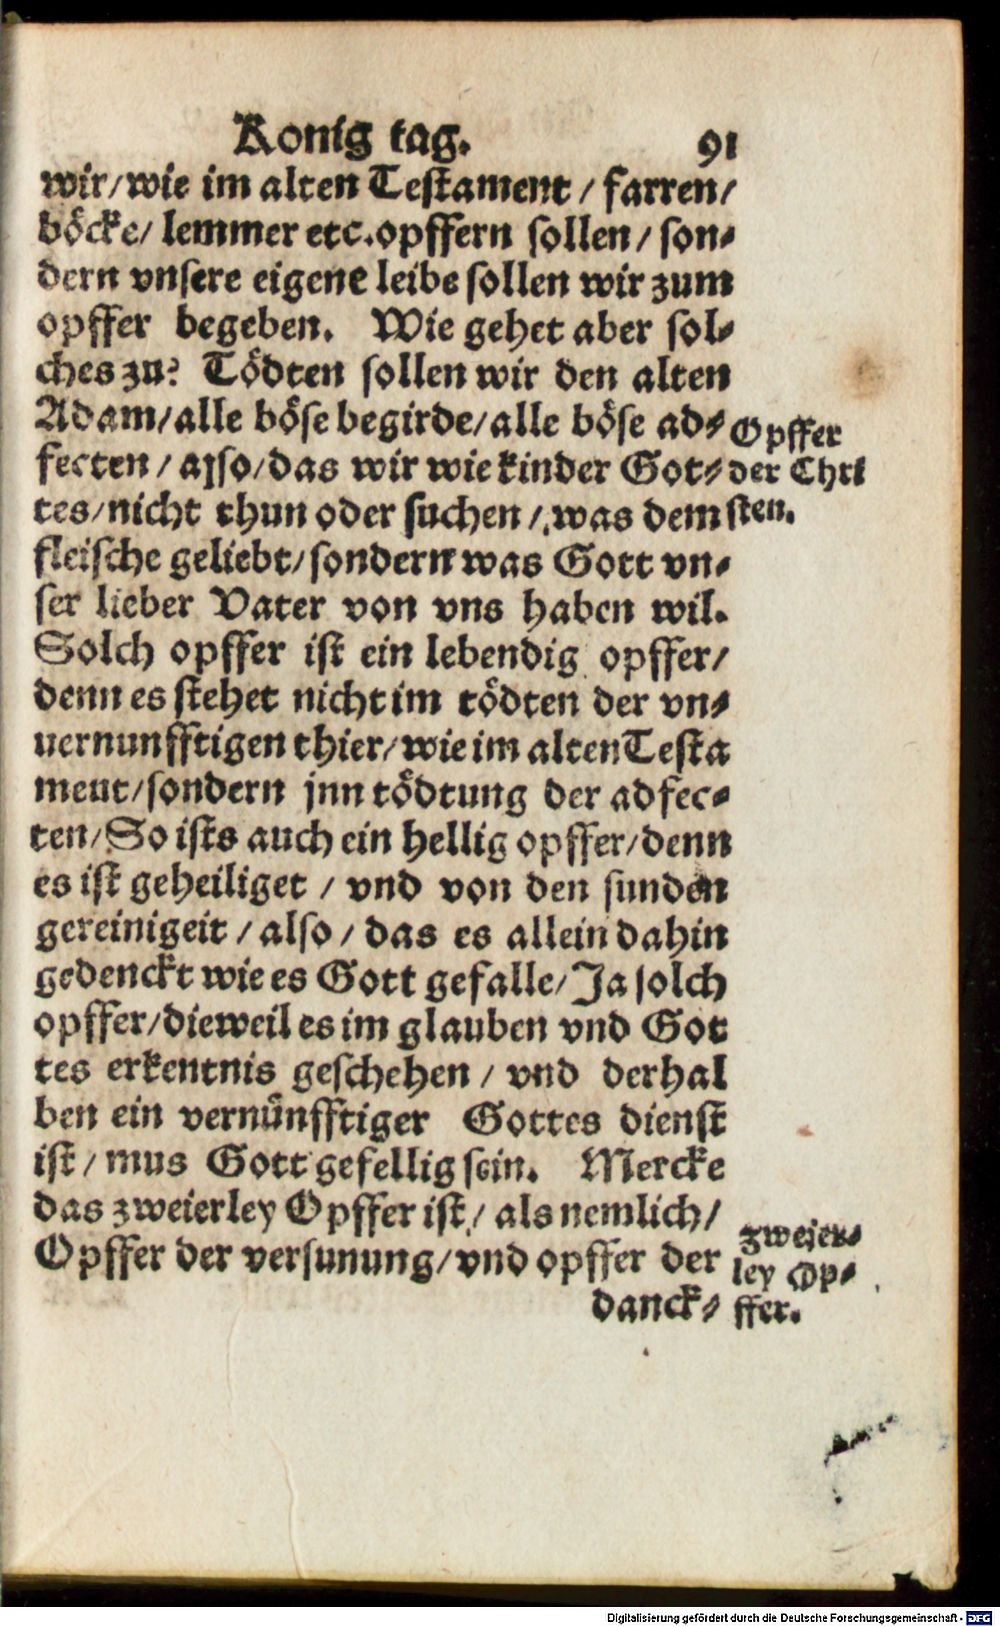 Konig tag. 91
wir/wie im alten Testament / farren/
böcke/ lemmer etc.opffern sollen/ son-
dern vnsere eigene leibe sollen wir zum
opffer begeben. Wie gehet aber sol-
ches zu? Tödten sollen wir den alten
Adam/alle böse begirde/alle böse ad-
fecten / also/das wir wie kinder Got-
tes/nicht thun oder suchen / was dem
fleische geliebt/sondern was Gott vn-
ser lieber Vater von vns haben wil.
Solch opffer ist ein lebendig opffer/
denn es stehet nicht im tödten der vn-
uernunfftigen thier/wie im alten Testa
ment/sondern jnn tödtung der adfec-
ten/So ists auch ein hellig opffer/denn
es ist geheiliget / vnd von den sunden
gereinigeit / also / das es allein dahin
gedenckt wie es Gott gefalle/Ja solch
opffer/dieweil es im glauben vnd Got
tes erkentnis geschehen / vnd derhal
ben ein vernünfftiger Gottes dienst
ist / mus Gott gefellig sein. Mercke
das zweierley Opffer ist / als nemlich/
Opffer der versunung/vnd opffer der
danck-
Opffer
der Chri
sten.
zweier-
ley Op-
ffer.
Digitalisierung gefördert durch die Deutsche Forschungsgemeinschaft - DFG